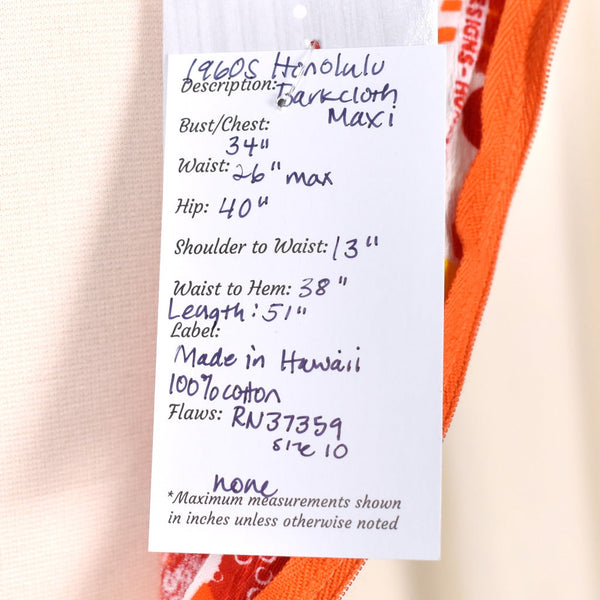 1960s Honolulu
Description: Barkcloth
Maxi
Bust/Chest:
34"
Waist: 26" max
Hip: 40"
Shoulder to Waist: 13"
Waist to Hem: 38"
Length: 51"
Label:
Made in Hawaii
100% cotton
Flaws: RN37359
size 10
none
*Maximum measurements shown
in inches unless otherwise noted